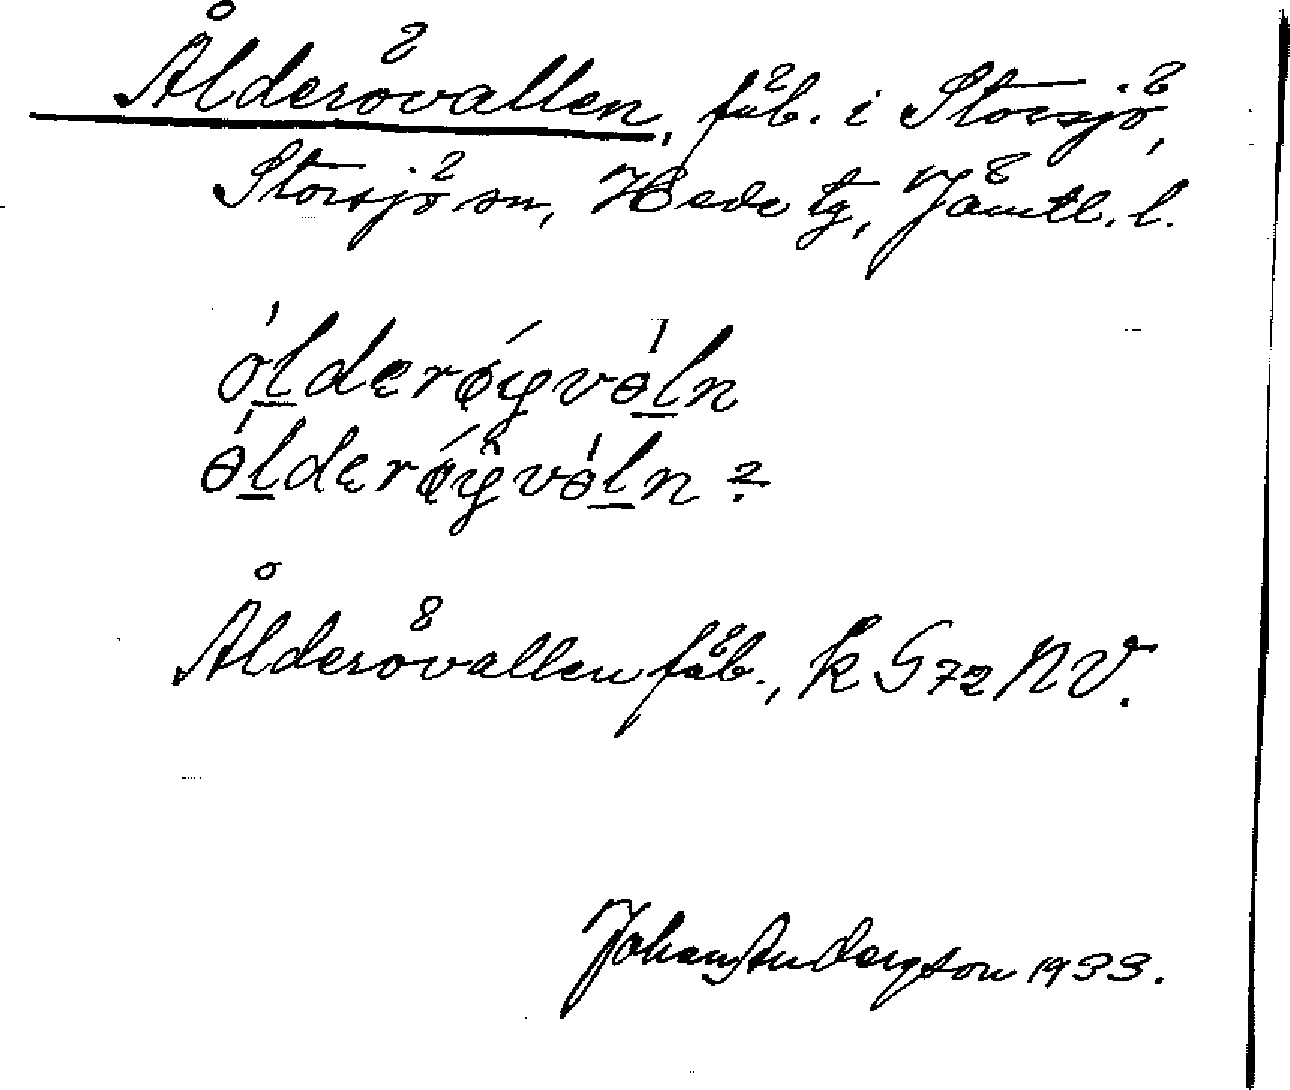 Ålderövallen, fäb. i Storsjö,
Storsjö sn, Hede tg, Jämtl. l.
ólderǿyvəln
ə́lderǿyvəln ?
Ålderövallen fäb., k G 72 NV.
Johan Anderzson 1933.